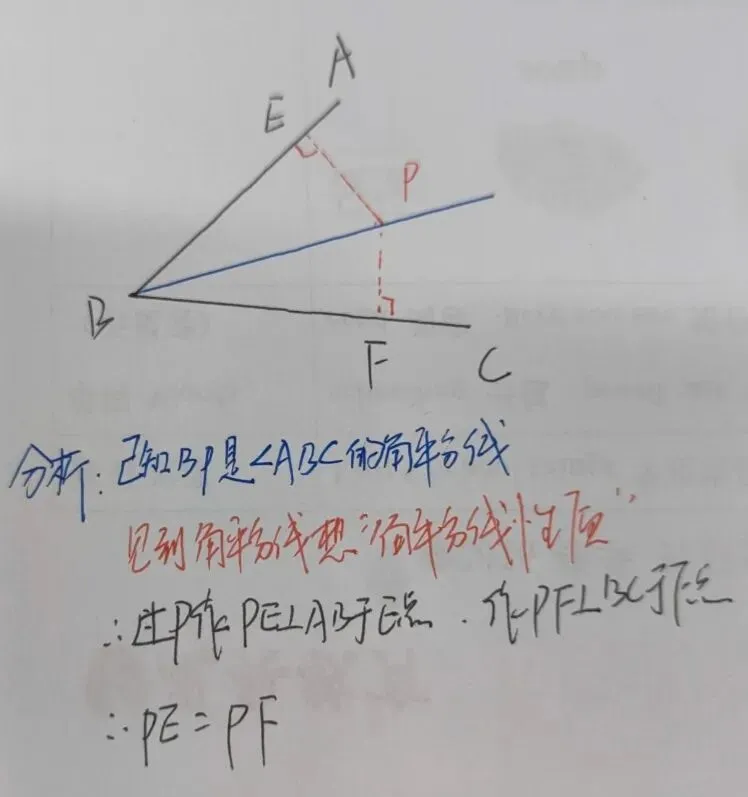 A
E
P
B
F
C
分析:已知BP是∠ABC的角平分线
见到角平分线想“角平分线性质”
∴过P作PE⊥AB于E点.作PF⊥BC于F点
∴PE=PF